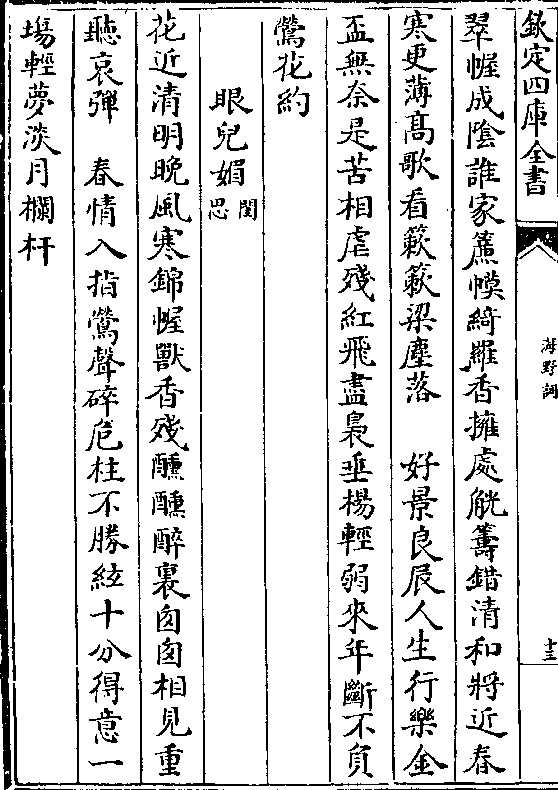 欽定四庫全書
海野詞
十三
翠幄成陰誰家簾幙綺羅香擁處觥籌錯清和將近春
寒更薄髙歌看簌簌梁塵落　好景良辰人生行樂金
盃無奈是苦相虐殘紅飛盡裊垂楊輕弱來年斷不負
鶯花約
眼兒媚閨思
花近清明晚風寒錦幄獸香殘醺醺醉裏囱囱相見重
聽哀彈　春情入指鶯聲碎危柱不勝絃十分得意一
塲輕夢淡月欄杆